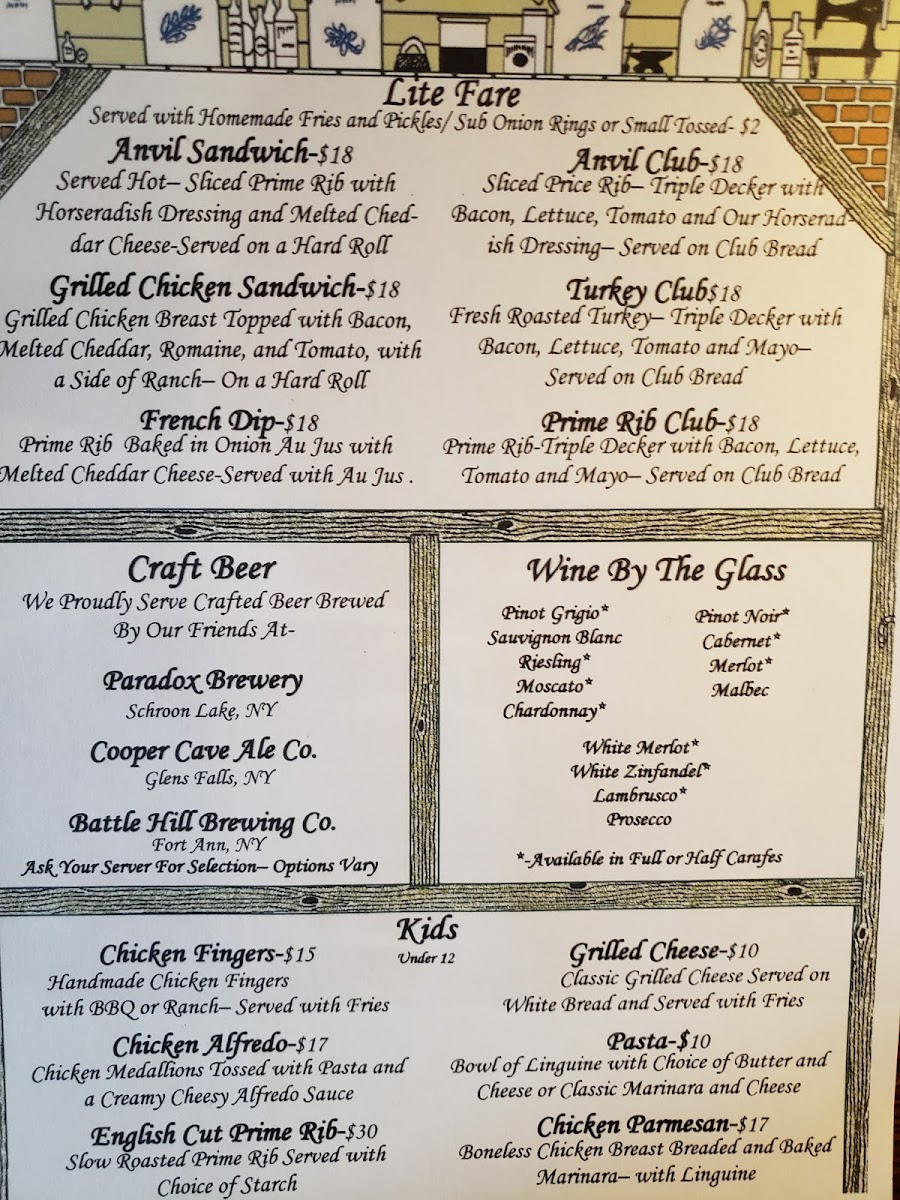 Lite Fare
Served with Homemade Fries and Pickles/ Sub Onion Rings or Small Tossed- $2
Anvil Sandwich-$18
Served Hot– Sliced Prime Rib with
Horseradish Dressing and Melted Ched-
dar Cheese-Served on a Hard Roll
Anvil Club-$18
Sliced Price Rib– Triple Decker with
Bacon, Lettuce, Tomato and Our Horserad-
ish Dressing– Served on Club Bread
Grilled Chicken Sandwich-$18
Grilled Chicken Breast Topped with Bacon,
Melted Cheddar, Romaine, and Tomato, with
a Side of Ranch– On a Hard Roll
Turkey Club$18
Fresh Roasted Turkey– Triple Decker with
Bacon, Lettuce, Tomato and Mayo–
Served on Club Bread
French Dip-$18
Prime Rib Baked in Onion Au Jus with
Melted Cheddar Cheese-Served with Au Jus .
Prime Rib Club-$18
Prime Rib-Triple Decker with Bacon, Lettuce,
Tomato and Mayo– Served on Club Bread
Craft Beer
We Proudly Serve Crafted Beer Brewed
By Our Friends At-
Paradox Brewery
Schroon Lake, NY
Cooper Cave Ale Co.
Glens Falls, NY
Battle Hill Brewing Co.
Fort Ann, NY
Ask Your Server For Selection– Options Vary
Wine By The Glass
Pinot Grigio*
Sauvignon Blanc
Riesling*
Moscato*
Chardonnay*
Pinot Noir*
Cabernet*
Merlot*
Malbec
White Merlot*
White Zinfandel*
Lambrusco*
Prosecco
*-Available in Full or Half Carafes
Kids
Under 12
Chicken Fingers-$15
Handmade Chicken Fingers
with BBQ or Ranch– Served with Fries
Grilled Cheese-$10
Classic Grilled Cheese Served on
White Bread and Served with Fries
Chicken Alfredo-$17
Chicken Medallions Tossed with Pasta and
a Creamy Cheesy Alfredo Sauce
Pasta-$10
Bowl of Linguine with Choice of Butter and
Cheese or Classic Marinara and Cheese
English Cut Prime Rib-$30
Slow Roasted Prime Rib Served with
Choice of Starch
Chicken Parmesan-$17
Boneless Chicken Breast Breaded and Baked
Marinara– with Linguine